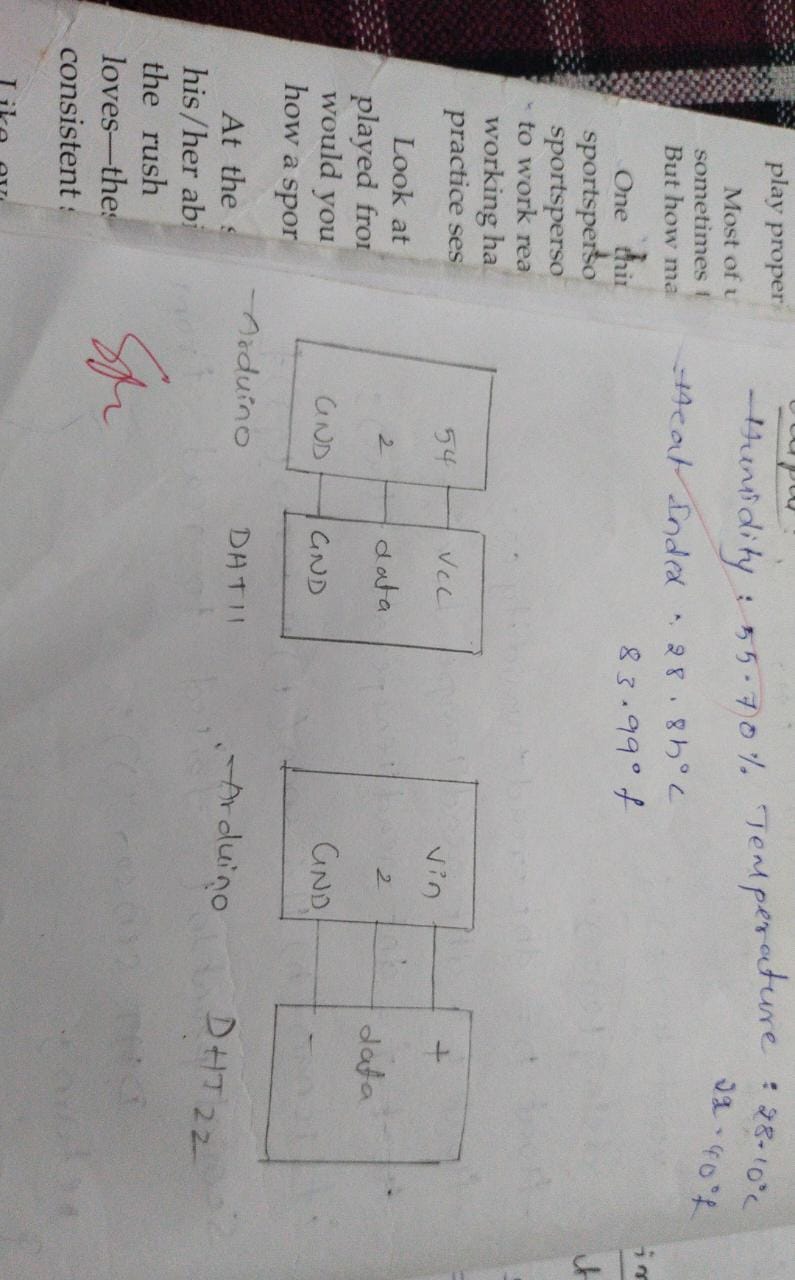 play proper
Most of u
sometimes
But how ma
One thin
sportsperso
sportsperso
to work rea
working ha
practice ses
Look at
played from
would you
how a spor
At the s
his/her abi
the rush
loves—thes
consistent
Like ev
Output
Humidity : 55.70% Temperature : 28.10°c
.40°f
Heat Index : 28.85°c
83.99° f
54 Vcc
2 data
GND GND
Arduino DHT11
Vin +
2 data
GND -
Arduino DHT22